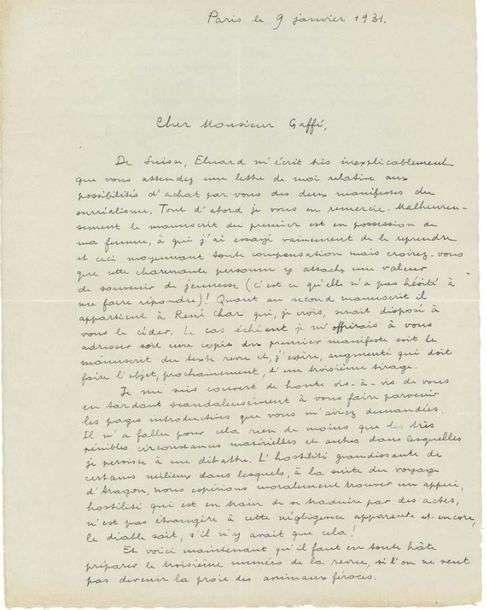 Paris le 9 janvier 1931.
Cher Monsieur Gaffé,
De Suisse, Eluard m'écrit très inexplicablement
que vous attendez une lettre de moi relative aux
possibilités d'achat par vous des deux manifestes du
surréalisme. Tout d'abord je vous en remercie. Malheureu-
sement le manuscrit du premier est en possession de
ma femme, à qui j'ai essayé vainement de le reprendre
et ceci moyennant toute compensation mais croyez-vous
que cette charmante personne y attache une valeur
de souvenir de jeunesse (c'est ce qu'elle n'a pas hésité à
me faire répondre)! Quant au second manuscrit il
appartient à René Char qui, je crois, serait disposé à
vous le céder. Le cas échéant je m'offrirais à vous
adresser soit une copie du premier manifeste soit le
manuscrit du texte revu et, j'espère, augmenté qui doit
faire l'objet, prochainement, d'un troisième tirage.
Je me suis couvert de honte vis-à-vis de vous
en tardant scandaleusement à vous faire parvenir
les pages introductives que vous m'aviez demandées.
Il n'a fallu pour cela rien de moins que les très
pénibles circonstances matérielles et autres dans lesquelles
je persiste à me débattre. L'hostilité grandissante de
certains milieux dans lesquels, à la suite du voyage
d'Aragon, nous espérions moralement trouver un appui,
hostilité qui est en train de se traduire par des actes,
n'est pas étrangère à cette négligence apparente et encore
le diable sait, s'il n'y avait que cela!
Et voici maintenant qu'il faut en toute hâte
préparer le troisième numéro de la revue, si l'on ne veut
pas devenir la proie des animaux féroces.